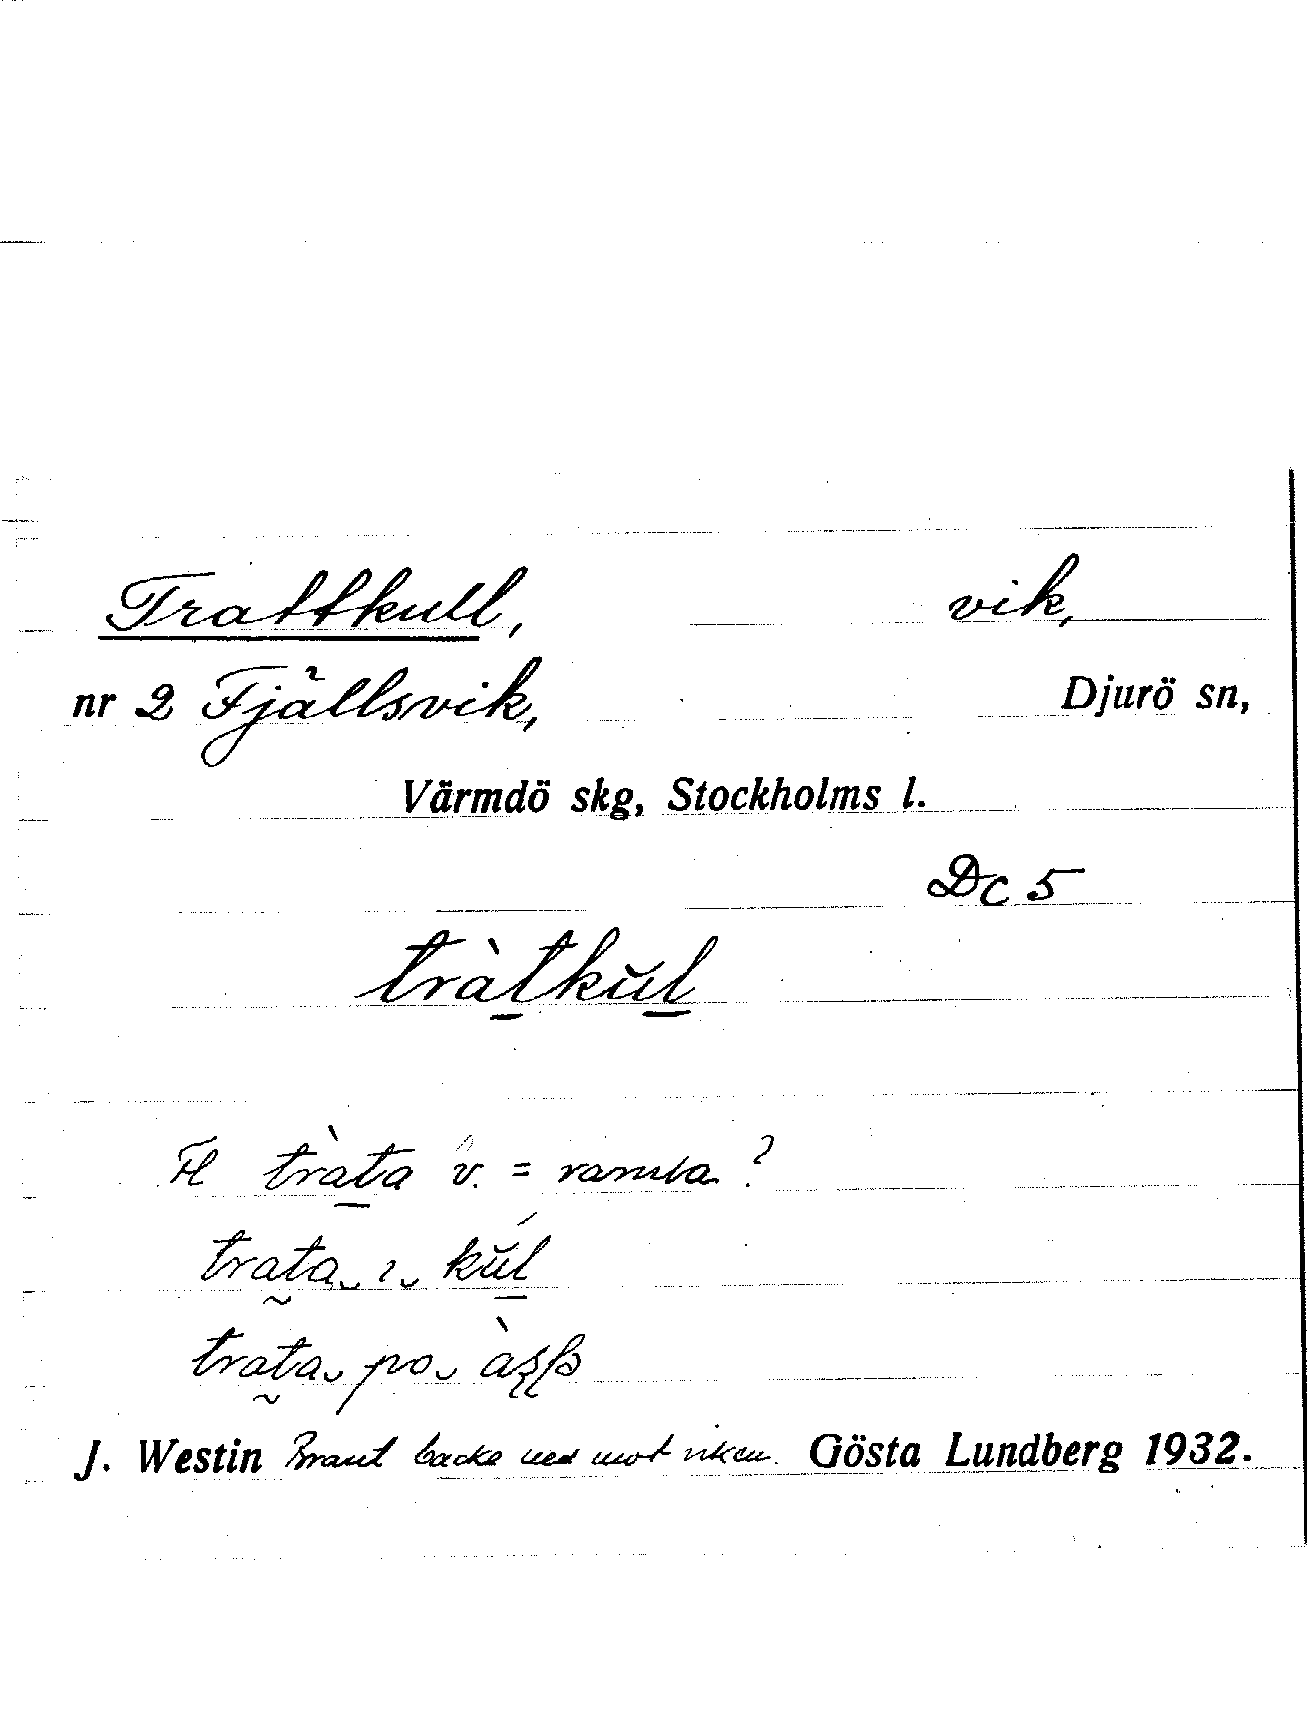 Trattkull, vik,
nr 2 Fjällsvik, Djurö sn,
Värmdö skg, Stockholms l.
Dc 5
tràtkŭl
Fl tràta v. = ramla ?
trata ı kŭ́l
trata po
J. Westin Brant backe ned mot viken. Gösta Lundberg 1932.